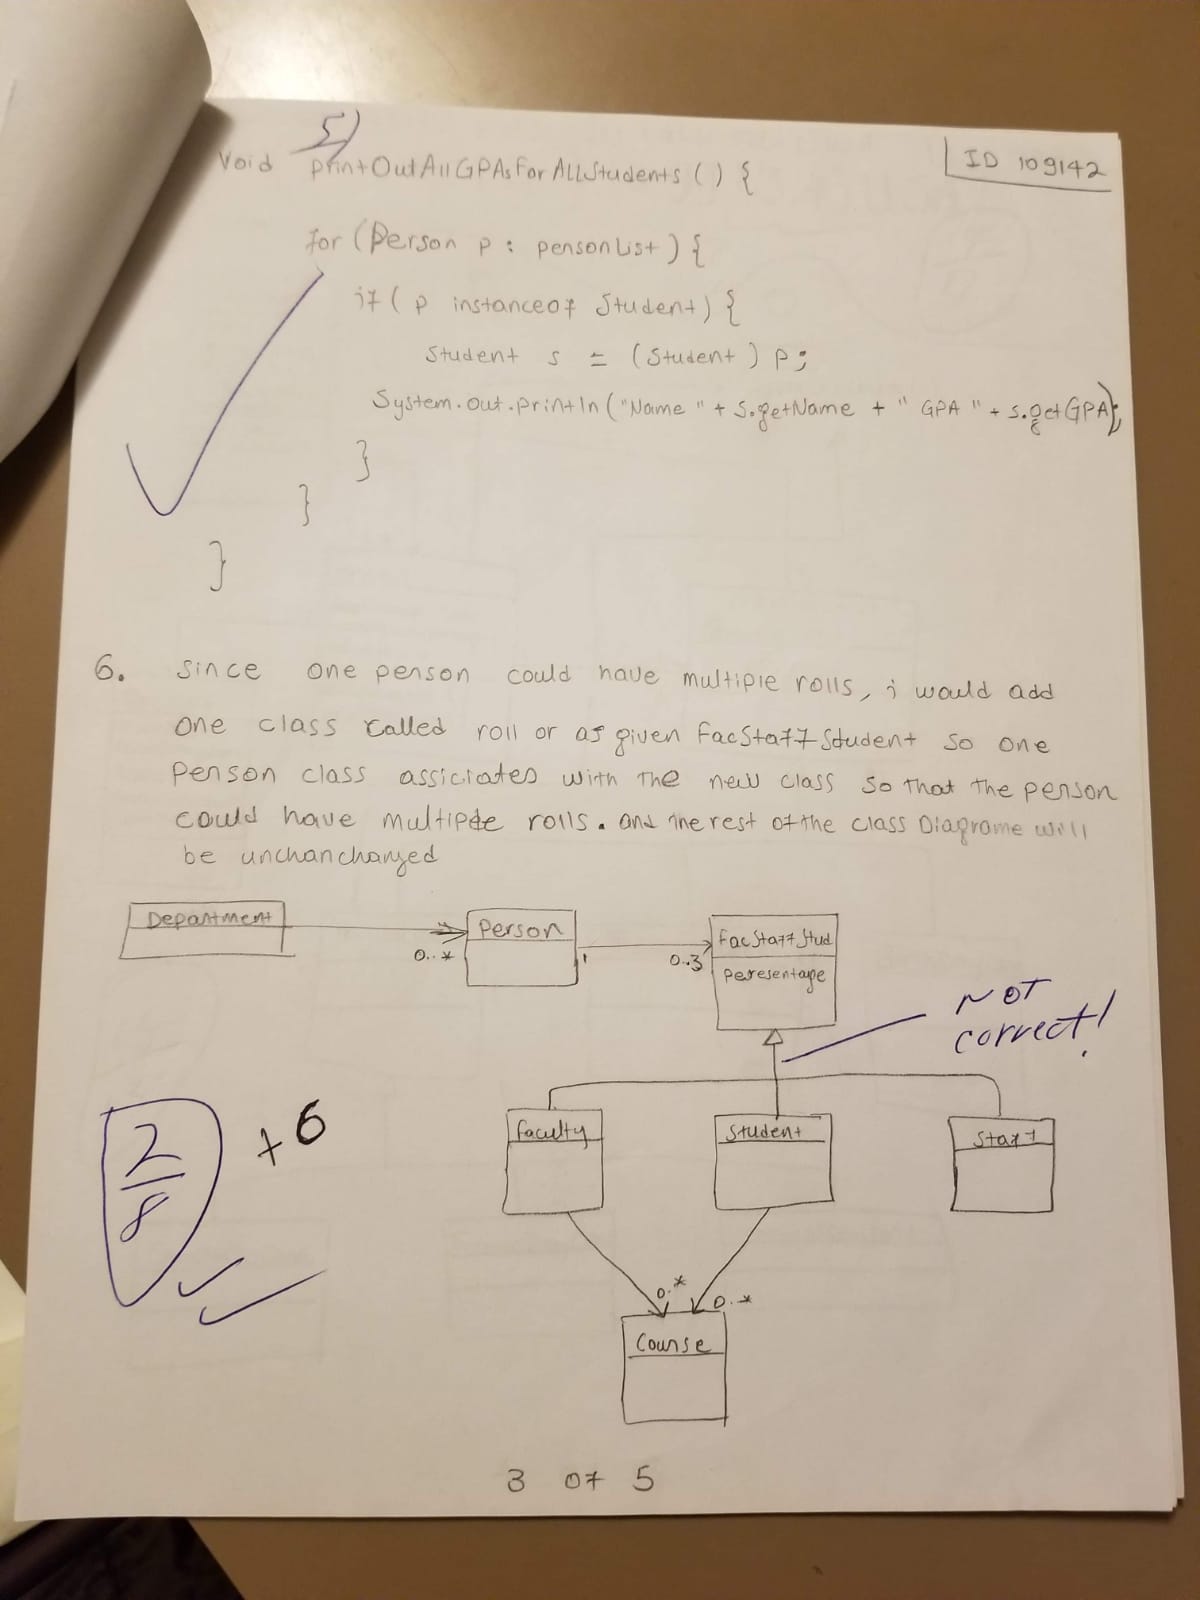 5)
ID 109142
Void printOutAllGPAsForAllStudents () {
for (Person p : personList) {
if ( p instanceof Student) {
Student s = (Student) p;
System.out.println ("Name " + s.getName + " GPA " + s.getGPA);
}
}
}
6. Since one person could have multiple rolls, i would add
one class called roll or as given FacStaffStudent so one
Person class assiciates with the new class so that the person
could have multiple rolls. and the rest of the class Diagrame will
be unchanchanged
Department
0..*
Person
1
0..3
FacStaffStud
peresentage
NOT
correct!
Faculty
Student
Staff
2/8 +6
0.*
0..*
Course
3 of 5